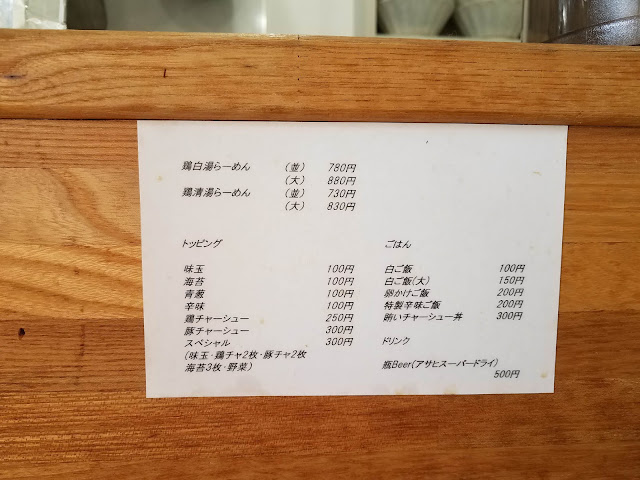 鶏白湯らーめん （並） 780円
（大） 880円
鶏清湯らーめん （並） 730円
（大） 830円
トッピング
味玉 100円
海苔 100円
青葱 100円
辛味 100円
鶏チャーシュー 250円
豚チャーシュー 300円
スペシャル 300円
（味玉・鶏チャ2枚・豚チャ2枚
海苔3枚・野菜）
ごはん
白ご飯 100円
白ご飯（大） 150円
卵かけご飯 200円
特製辛味ご飯 200円
賄いチャーシュー丼 300円
ドリンク
瓶Beer（アサヒスーパードライ）
500円